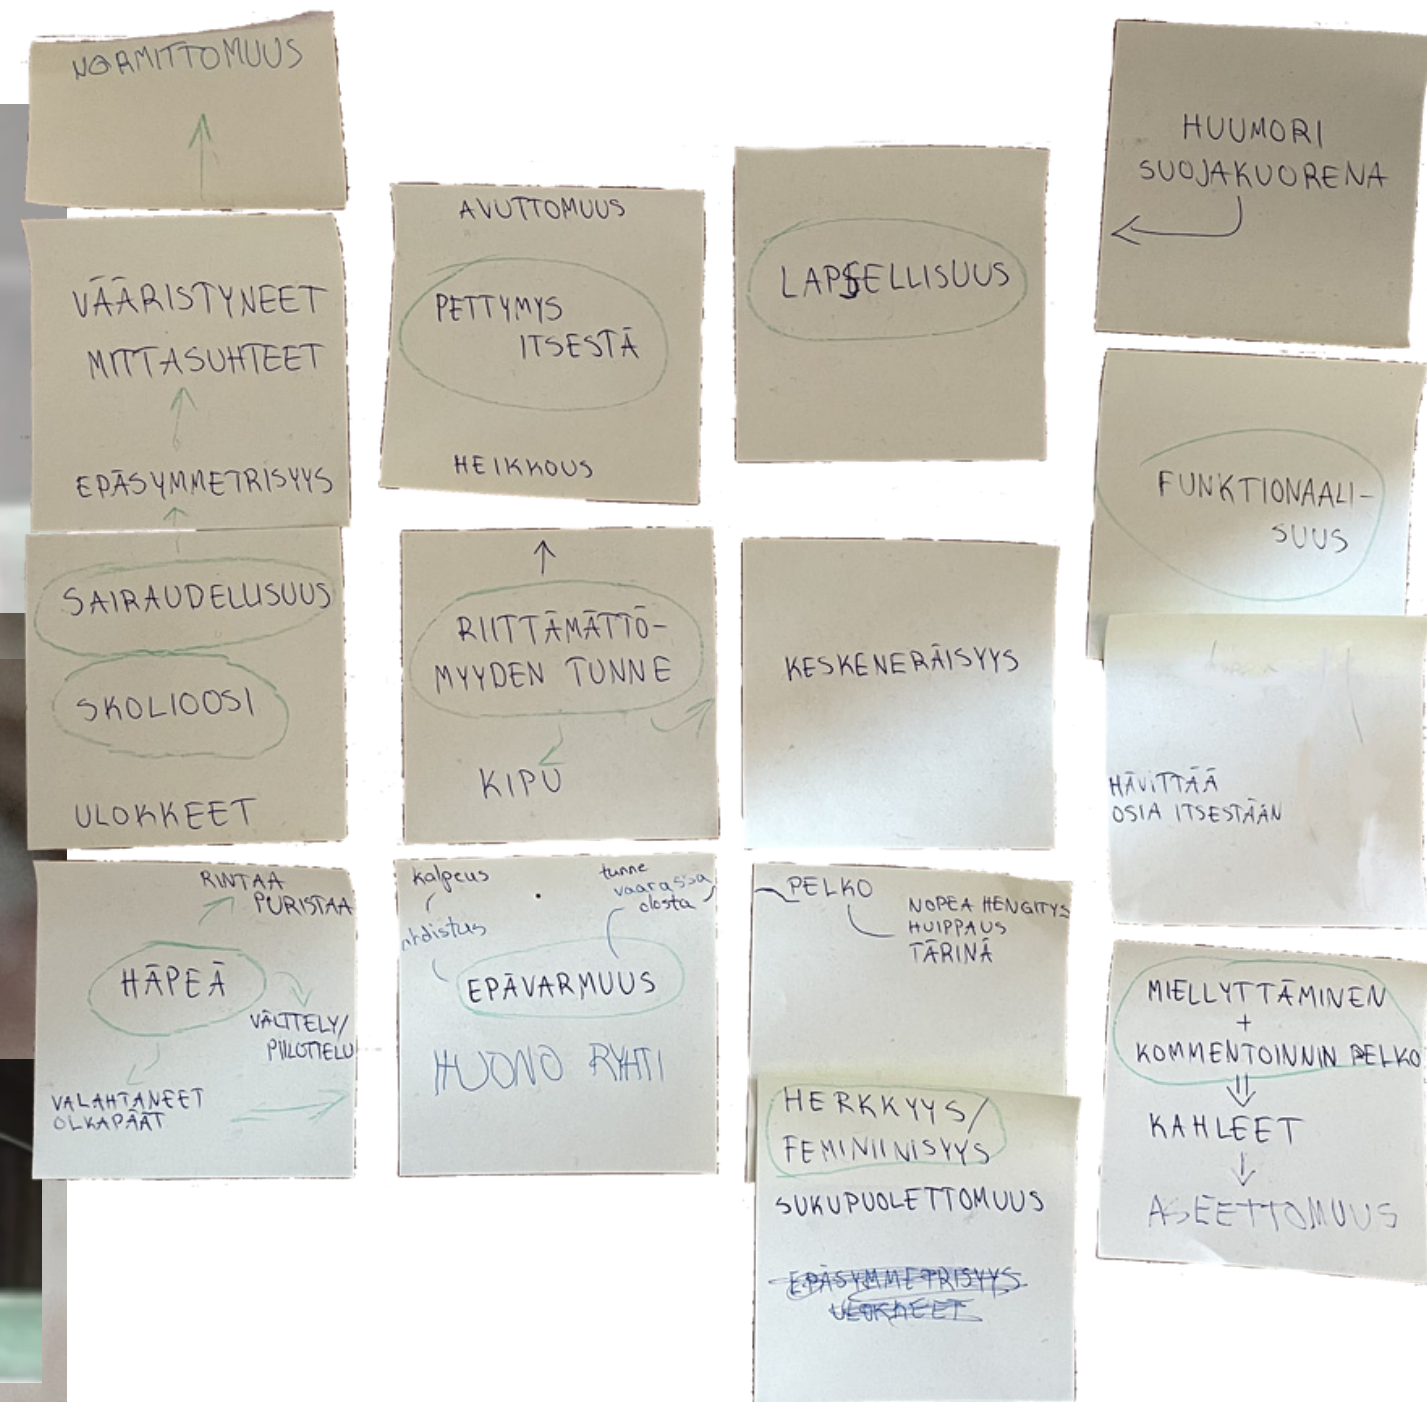 NORMITTOMUUS
VÄÄRISTYNEET
MITTASUHTEET
EPÄSYMMETRISYYS
SAIRAUDELLISUUS
SKOLIOOSI
ULOKKEET
RINTAA
PURISTAA
HÄPEÄ
VÄLTTELY/
PIILOTTELU
VALAHTANEET
OLKAPÄÄT
AVUTTOMUUS
PETTYMYS
ITSESTÄ
HEIKKOUS
RIITTÄMÄTTÖ-
MYYDEN TUNNE
KIPU
kalpeus
tunne
vaarassa
olosta
EPÄVARMUUS
HUONO RYHTI
LAPSELLISUUS
KESKENERÄISYYS
PELKO
NOPEA HENGITYS
HUIPPAUS
TÄRINÄ
HERKKYYS/
FEMINIINISYYS
SUKUPUOLETTOMUUS
EPÄSYMMETRISYYS
ULOKKEET
HUUMORI
SUOJAKUORENA
FUNKTIONAALI-
SUUS
HÄVITTÄÄ
OSIA ITSESTÄÄN
MIELLYTTÄMINEN
+
KOMMENTOINNIN PELKO
KAHLEET
ASEETTOMUUS